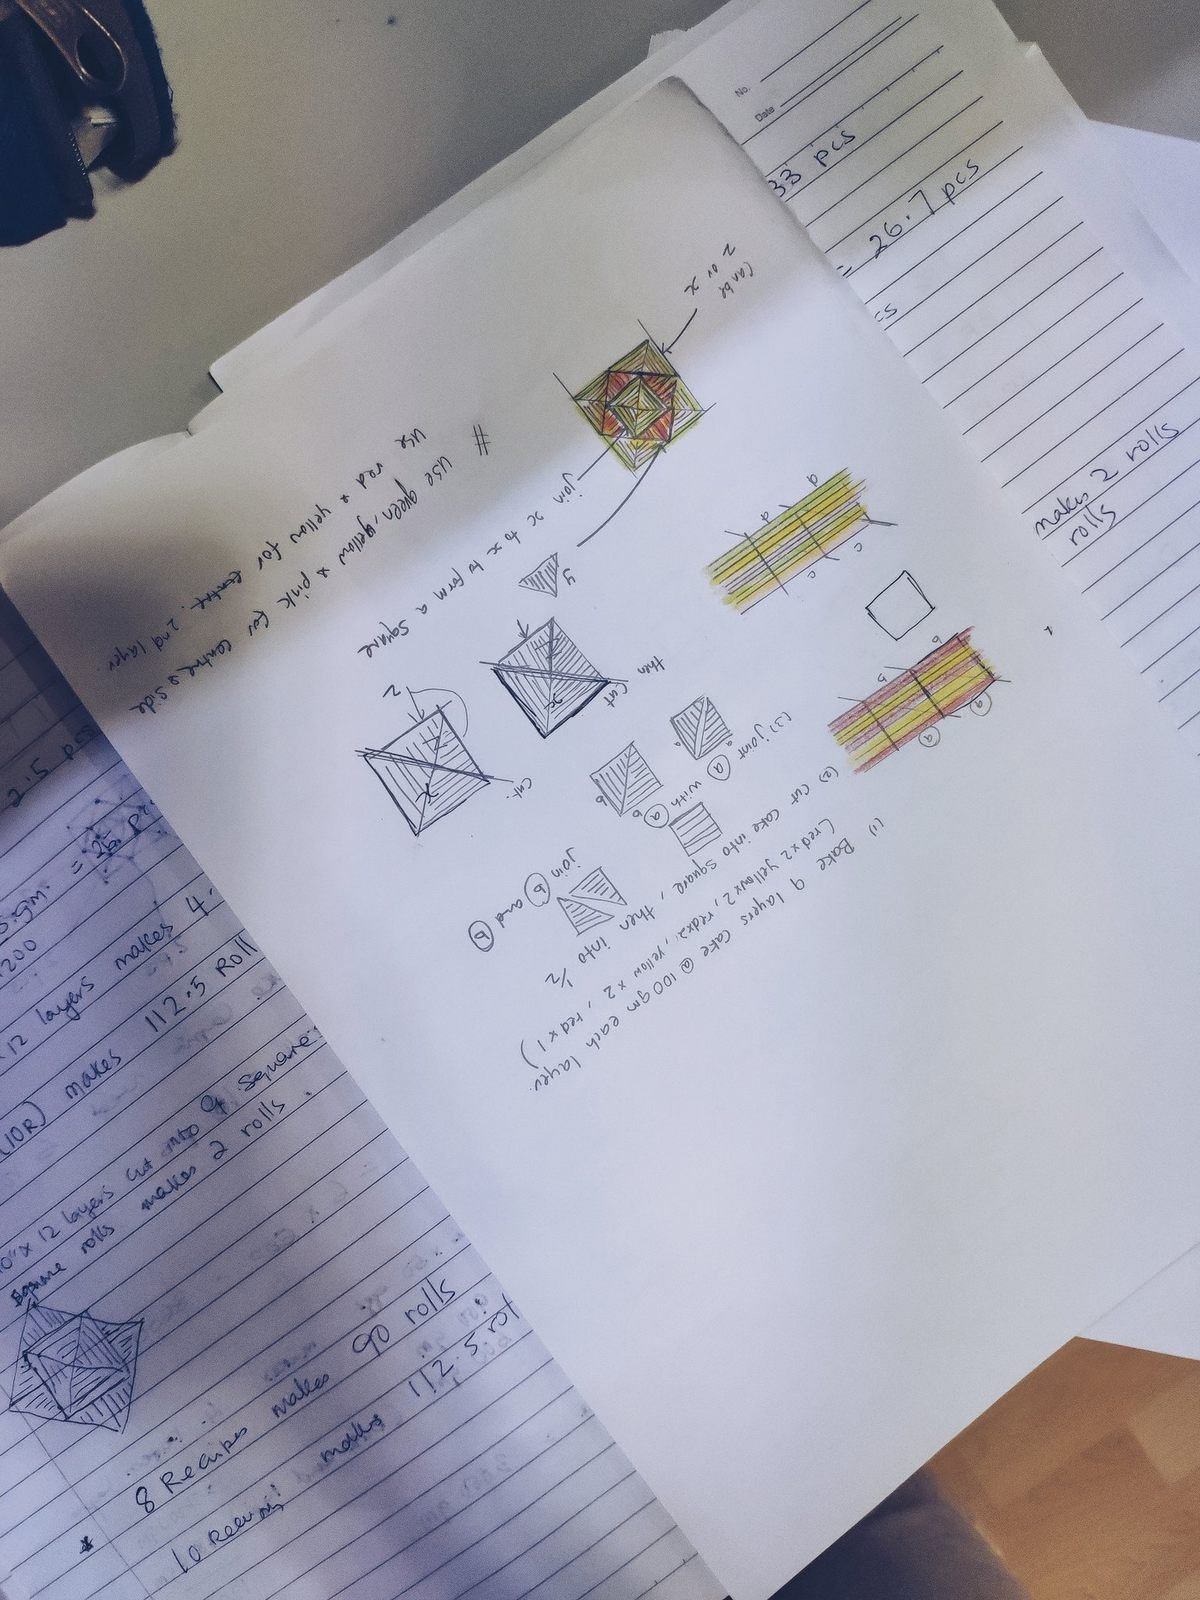 (1) Bake 9 layers cake @ 100gm each layer.
(red x 2 yellow x 2, red x 2, yellow x 2, red x 1)
(2) cut cake into square, then into 1/2
(3) joint (a) with (a)
join (b) and (b)
a
a
b
b
a
a
b
b
c
c
d
d
then
cut
x
y
cut.
x
z
join x to x to form a square
can be
z or x
# use green, yellow & pink for centre & side
use red & yellow for centre. 2nd layer.
No.
Date
33 pcs
= 26.7 pcs
cs
makes 2 rolls
rolls
2.5
5.gm.
200
x 12 layers makes 4.
(10R) makes 112.5 Roll
10" x 12 layers cut into square.
rolls makes 2 rolls.
* 8 Recipes makes 90 rolls
10 makes 112.5